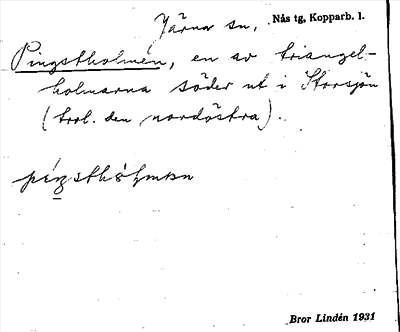 Järna sn, Nås tg, Kopparb. l.
Pingstholmen, en av triangel-
holmarna söder ut i Storsjön
(trol. den nordöstra).
Bror Lindén 1931